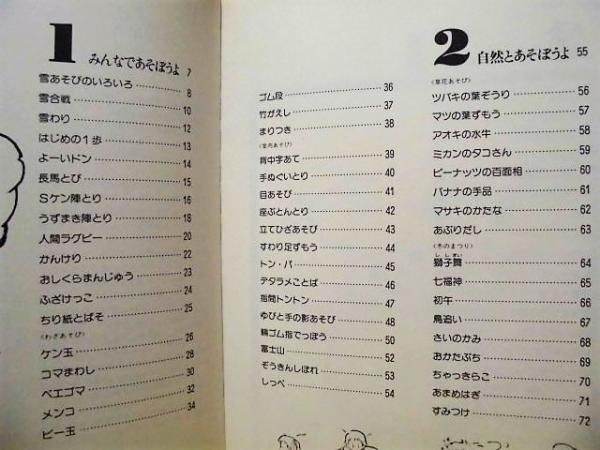 1 みんなであそぼうよ 7
雪あそびのいろいろ 8
雪合戦 10
雪わり 12
はじめの1歩 13
よーいドン 14
長馬とび 15
Sケン陣とり 16
うずまき陣とり 18
人間ラグビー 20
かんけり 22
おしくらまんじゅう 23
ふざけっこ 24
ちり紙とばそ 25
〈わざあそび〉
ケン玉 26
コマまわし 28
ベエゴマ 30
メンコ 32
ビー玉 34
ゴム段 36
竹がえし 37
まりつき 38
〈室内あそび〉
背中字あて 39
手ぬぐいとり 40
目あそび 41
座ぶとんとり 42
立てひざあそび 43
すわり足ずもう 44
トン・パ 45
デタラメことば 46
指間トントン 47
ゆびと手の影あそび 48
輪ゴム指でっぽう 50
富士山 52
ぞうきんしぼれ 53
しっぺ 54
2 自然とあそぼうよ 55
〈草花あそび〉
ツバキの葉ぞうり 56
マツの葉ずもう 57
アオキの水牛 58
ミカンのタコさん 59
ピーナッツの百面相 60
バナナの手品 61
マサキのかたな 62
あぶりだし 63
〈冬のまつり〉
獅子舞 64
七福神 65
初午 66
鳥追い 67
さいのかみ 68
おかたぶち 69
ちゃっきらこ 70
あまめはぎ 71
すみつけ 72